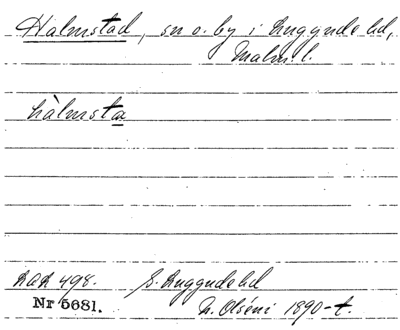 Halmstad, sn o. by i Luggude hd,
Malm. l.
hàlmsta
LAL 498. S. Luggude hd
Nr 5681. N. Olséni 1890-t.